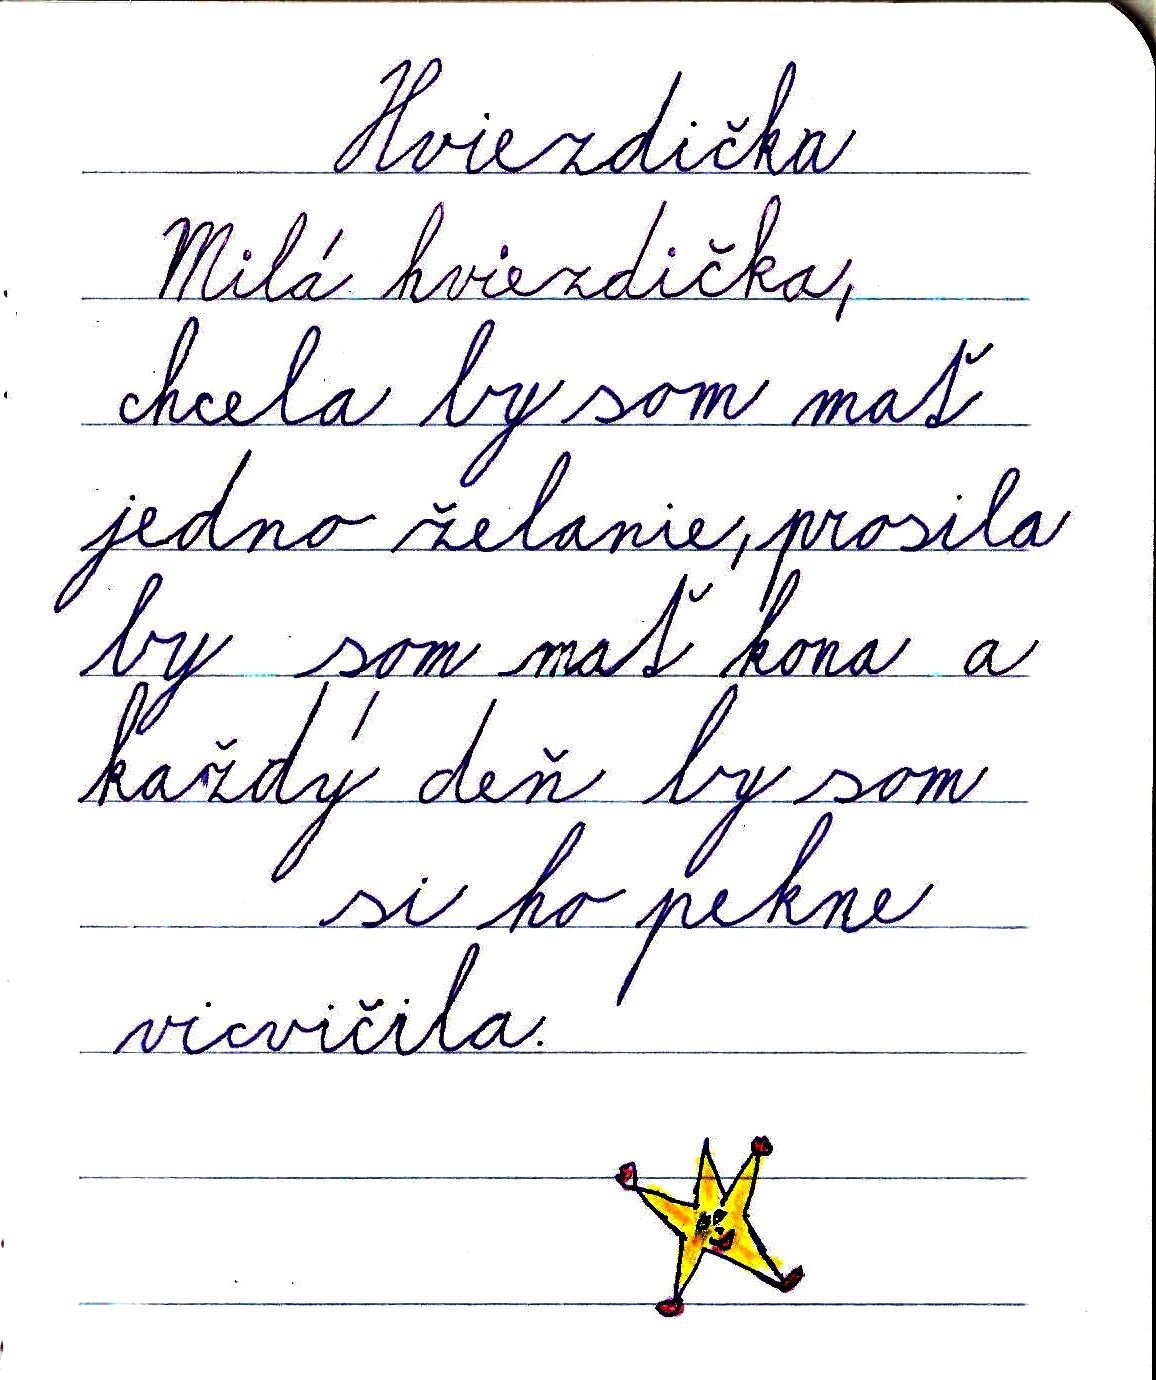 Hviezdička
Milá hviezdička,
chcela by som mať
jedno želanie, prosila
by som mať kona a
každý deň by som
si ho pekne
vicvičila.